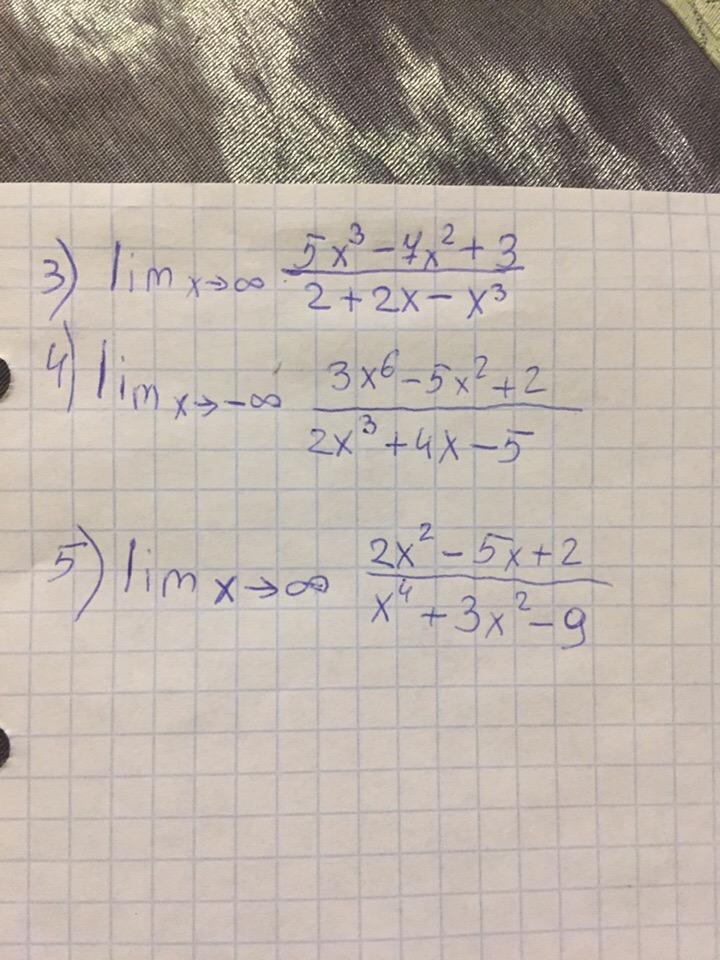 3) lim x→∞ (5x³ - 7x² + 3) / (2 + 2x - x³)
4) lim x→-∞ (3x⁶ - 5x² + 2) / (2x³ + 4x - 5)
5) lim x→∞ (2x² - 5x + 2) / (x⁴ + 3x² - 9)